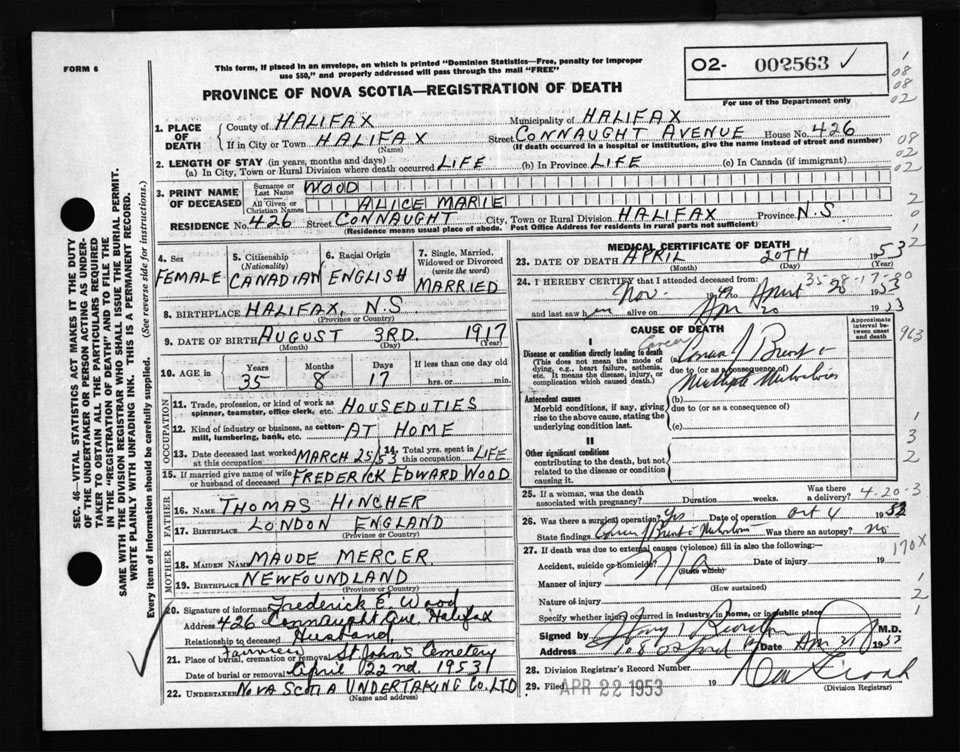 FORM 6
This form, if placed in an envelope, on which is printed "Dominion Statistics—Free, penalty for improper
use $50," and properly addressed will pass through the mail "FREE"
PROVINCE OF NOVA SCOTIA—REGISTRATION OF DEATH
02- 002563 ✓
For use of the Department only
1
08
08
02
08
02
02
2
0
1
2
1. PLACE OF DEATH
County of HALIFAX Municipality of HALIFAX
If in City or Town HALIFAX Street CONNAUGHT AVENUE House No. 426
(Name) (If death occurred in a hospital or institution, give the name instead of street and number)
2. LENGTH OF STAY (in years, months and days)
(a) In City, Town or Rural Division where death occurred LIFE (b) In Province LIFE (c) In Canada (if immigrant)
3. PRINT NAME OF DECEASED
Surname or Last Name WOOD
All Given or Christian Names ALICE MARIE
RESIDENCE No. 426 Street CONNAUGHT City, Town or Rural Division HALIFAX Province N.S.
(Residence means usual place of abode. Post Office Address for residents in rural parts not sufficient)
4. Sex FEMALE
5. Citizenship (Nationality) CANADIAN
6. Racial Origin ENGLISH
7. Single, Married, Widowed or Divorced (write the word) MARRIED
8. BIRTHPLACE HALIFAX, N.S.
(Province or Country)
9. DATE OF BIRTH AUGUST 3RD. 1917
(Month) (Day) (Year)
10. AGE in Years Months Days If less than one day old
35 8 17 hrs. or min.
OCCUPATION
11. Trade, profession, or kind of work as spinner, teamster, office clerk, etc. HOUSEDUTIES
12. Kind of industry or business, as cotton-mill, lumbering, bank, etc. AT HOME
13. Date deceased last worked at this occupation MARCH 25/53 14. Total yrs. spent in this occupation LIFE
15. If married give name of wife or husband of deceased FREDERICK EDWARD WOOD
FATHER
16. NAME THOMAS HINCHER
17. BIRTHPLACE LONDON ENGLAND
(Province or Country)
MOTHER
18. MAIDEN NAME MAUDE MERCER
19. BIRTHPLACE NEWFOUNDLAND
(Province or Country)
20. Signature of informant Frederick E. Wood
Address 426 Connaught Ave, Halifax
Relationship to deceased Husband
21. Place of burial, cremation or removal Fairview St John's Cemetery
Date of burial or removal April 22nd, 1953
22. UNDERTAKER NOVA SCOTIA UNDERTAKING CO. LTD
(Name and address)
MEDICAL CERTIFICATE OF DEATH
23. DATE OF DEATH APRIL 20TH 1953
(Month) (Day) (Year)
35-8-17-80
24. I HEREBY CERTIFY that I attended deceased from:
Nov. 1949 to April 20 1953
and last saw her alive on Apr 20 1953
CAUSE OF DEATH
Approximate interval between onset and death
963
I
Disease or condition directly leading to death
(This does not mean the mode of dying, e.g., heart failure, asthenia, etc. It means the disease, injury, or complication which caused death.)
Cancer
Cancer of Breast &
due to (or as a consequence of)
Multiple
Antecedent causes
Morbid conditions, if any, giving rise to the above cause, stating the underlying condition last.
(b)
due to (or as a consequence of)
(c)
II
Other significant conditions
contributing to the death, but not related to the disease or condition causing it.
1
3
2
25. If a woman, was the death associated with pregnancy? Duration weeks. Was there a delivery?
4-20-3
26. Was there a surgical operation? Yes Date of operation Oct 4 1952
State findings Cancer of Breast & Was there an autopsy? no
27. If death was due to external causes (violence) fill in also the following:—
Accident, suicide or homicide? Date of injury 19
(State which)
170X
Manner of injury
(How sustained)
Nature of injury
1
2
1
Specify whether injury occurred in industry, in home, or in public place
Signed by M.D.
Address 108 Oxford Date Apr 21 1953
28. Division Registrar's Record Number
29. Filed APR 22 1953 19
(Division Registrar)
SEC. 46—VITAL STATISTICS ACT MAKES IT THE DUTY
OF THE UNDERTAKER OR PERSON ACTING AS UNDER-
TAKER TO OBTAIN ALL THE PARTICULARS REQUIRED
IN THE "REGISTRATION OF DEATH" AND TO FILE THE
SAME WITH THE DIVISION REGISTRAR WHO SHALL ISSUE THE BURIAL PERMIT.
WRITE PLAINLY WITH UNFADING INK. THIS IS A PERMANENT RECORD.
Every item of information should be carefully supplied. (See reverse side for instructions.)